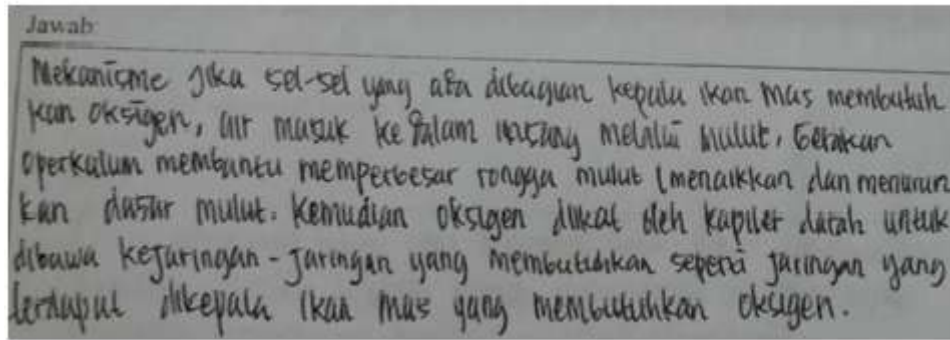 Jawab:
Mekanisme jika sel-sel yang ada dibagian kepala ikan mas membutuh
kan oksigen, air masuk ke dalam insang melalui mulut, Gerakan
operkulum membantu memperbesar rongga mulut (menaikkan dan menurun
kan dasar mulut. Kemudian oksigen diikat oleh kapiler darah untuk
dibawa kejaringan-jaringan yang membutuhkan seperti jaringan yang
terdapat dikepala ikan mas yang membutuhkan oksigen.